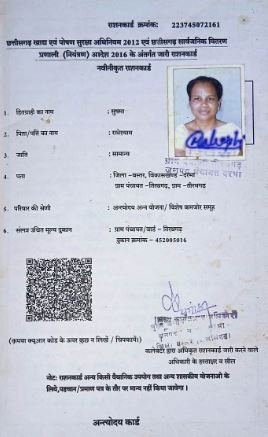 राशनकार्ड क्रमांक: 223745072161
छत्तीसगढ़ खाद्य एवं पोषण सुरक्षा अधिनियम 2012 एवं छत्तीसगढ़ सार्वजनिक वितरण
प्रणाली (नियंत्रण) आदेश 2016 के अंतर्गत जारी राशनकार्ड
नवीनीकृत राशनकार्ड
1. हितग्राही का नाम : सुषमा
2. पिता/पति का नाम : राधेश्याम
3. जाति : सामान्य
4. पता : जिला -बस्तर, विकासखण्ड -दरभा
ग्राम पंचायत -तिरथगढ़, ग्राम -तीरथगढ़
5. परिवार की श्रेणी : अन्त्योदय अन्न योजना/ विशेष कमजोर समूह
6. संलग्न उचित मूल्य दुकान : ग्राम पंचायत/वार्ड - तिरथगढ़
दुकान क्रमांक - 452005016
(कृपया क्यूआर कोड के ऊपर कुछ न लिखें / चिपकायें।)
कलेक्टर द्वारा अधिकृत राशनकार्ड जारी करने वाले
अधिकारी के हस्ताक्षर व सील
नोट: राशनकार्ड अन्य किसी वैधानिक उपयोग तथा अन्य शासकीय योजनाओं के
लिये,पहचान/प्रमाण पत्र के तौर पर मान्य नहीं किया जावेगा।
अन्त्योदय कार्ड